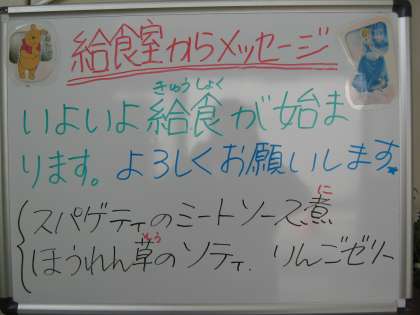 給食室からメッセージ
きゅうしょく
いよいよ給食が始ま
ります。よろしくお願いします。
に
スパゲティのミートソース煮
そう
ほうれん草のソティ. りんごゼリー